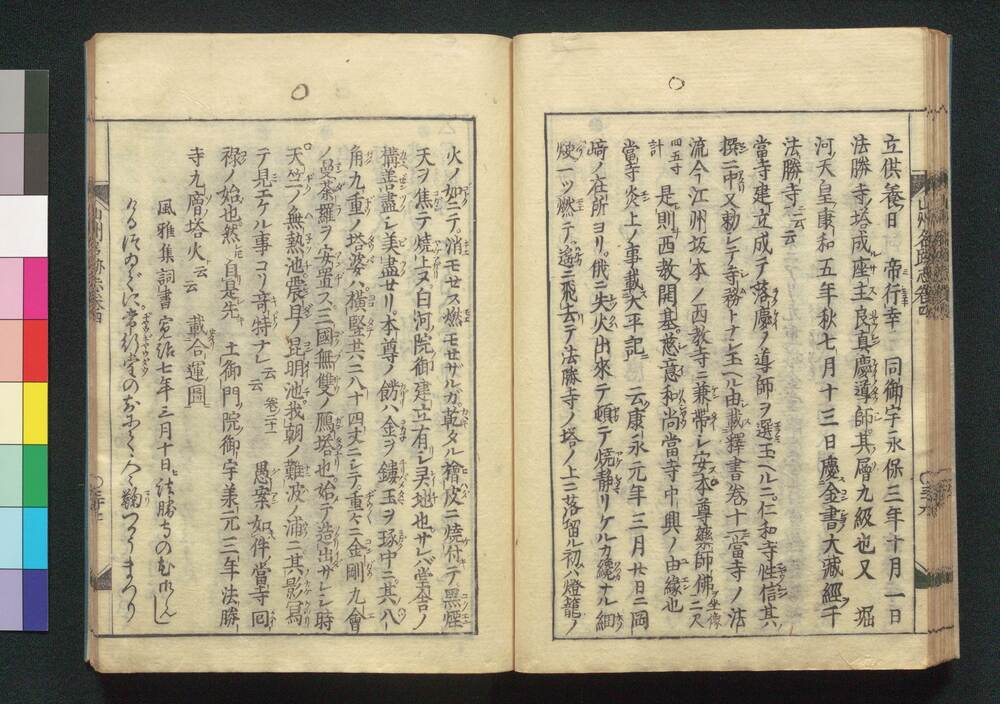 立供養日 帝行幸 同御宇永保三年十月一日
法勝寺ノ塔成座主良真慶導師其層九級也又 堀
河天皇康和五年秋七月十三日慶金書大藏經于
法勝寺ニ云云
當寺建立成テ落慶ノ導師ヲ選玉ヘルニ仁和寺性信其
撰ニ中又勅シテ寺務トナシ玉ヘル由載釋書巻十一當寺ノ法
流今江州坂本ノ西教寺ニ兼帯シ安本尊藥師佛坐像二尺
四五寸計 是則西教開基慈意和尚當寺中興ノ由縁也
當寺炎上ノ事載太平記ニ云康永元年三月廿日ニ岡
﨑ノ在所ヨリ俄ニ失火出來テ頓テ焼静リケルカ纔ナル細
煙一ツ燃テ遙ニ飛去テ法勝寺ノ塔ノ上ニ落留ル初ハ燈籠ノ
火ノ如ニテ消モセス燃モセザルガ乾タル檜皮ニ焼付テ黒煙
天ヲ焦テ焼上ヌ白河院御建立有シ㚑地也サレバ堂舎ノ
構善盡シ美盡セリ本尊ノ餝ハ金ヲ鏤玉ヲ琢中ニ其ハ八
角九重ノ塔婆ハ橫竪共ニ八十四丈ニシテ重々ニ金剛九會
ノ曼荼羅ヲ安置ス三國無雙ノ鴈塔也始テ造出サレシ時
天竺ノ無熱池震旦ノ昆明池我朝ノ難波ノ浦ニ其影寫
テ見エケル事コソ竒特ナレ云云 巻二十一 愚案如件ノ當寺囘
禄ノ始也然レトモ自是先キ 土御門ノ院御宇兼元二年法勝
寺九層塔火ト云云 載合運圖ニ
風雅集詞書 宽治七年三月十日法勝寺の
常行堂の
山州名跡志巻四
山州名跡志巻四